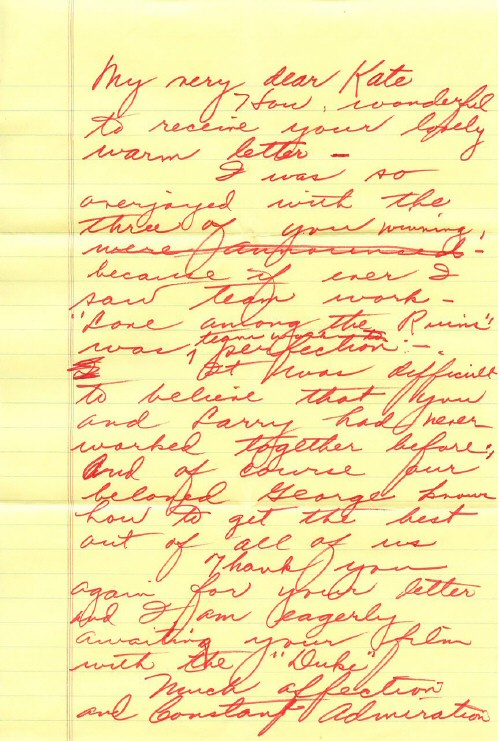 My very dear Kate
How wonderful
to receive your lovely
warm letter -
I was so
overjoyed with the
three of you winning,
were announced -
because if ever I
saw team work -
"Love among the Ruins"
was team work to perfection -
I It was difficult
to believe that you
and Larry had never
worked together before,
And of course our
beloved George knows
how to get the best
out of all of us
Thank you
again for your letter
and I am eagerly
awaiting your film
with the "Duke"
Much affection
and Constant Admiration